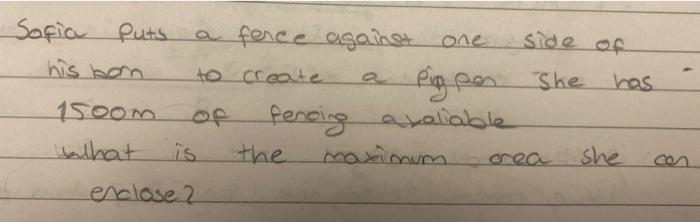 Sofia puts a fence against one side of
his barn to create a pig pen She has
1500m of fencing avaliable
What is the maximum area she can
enclose?